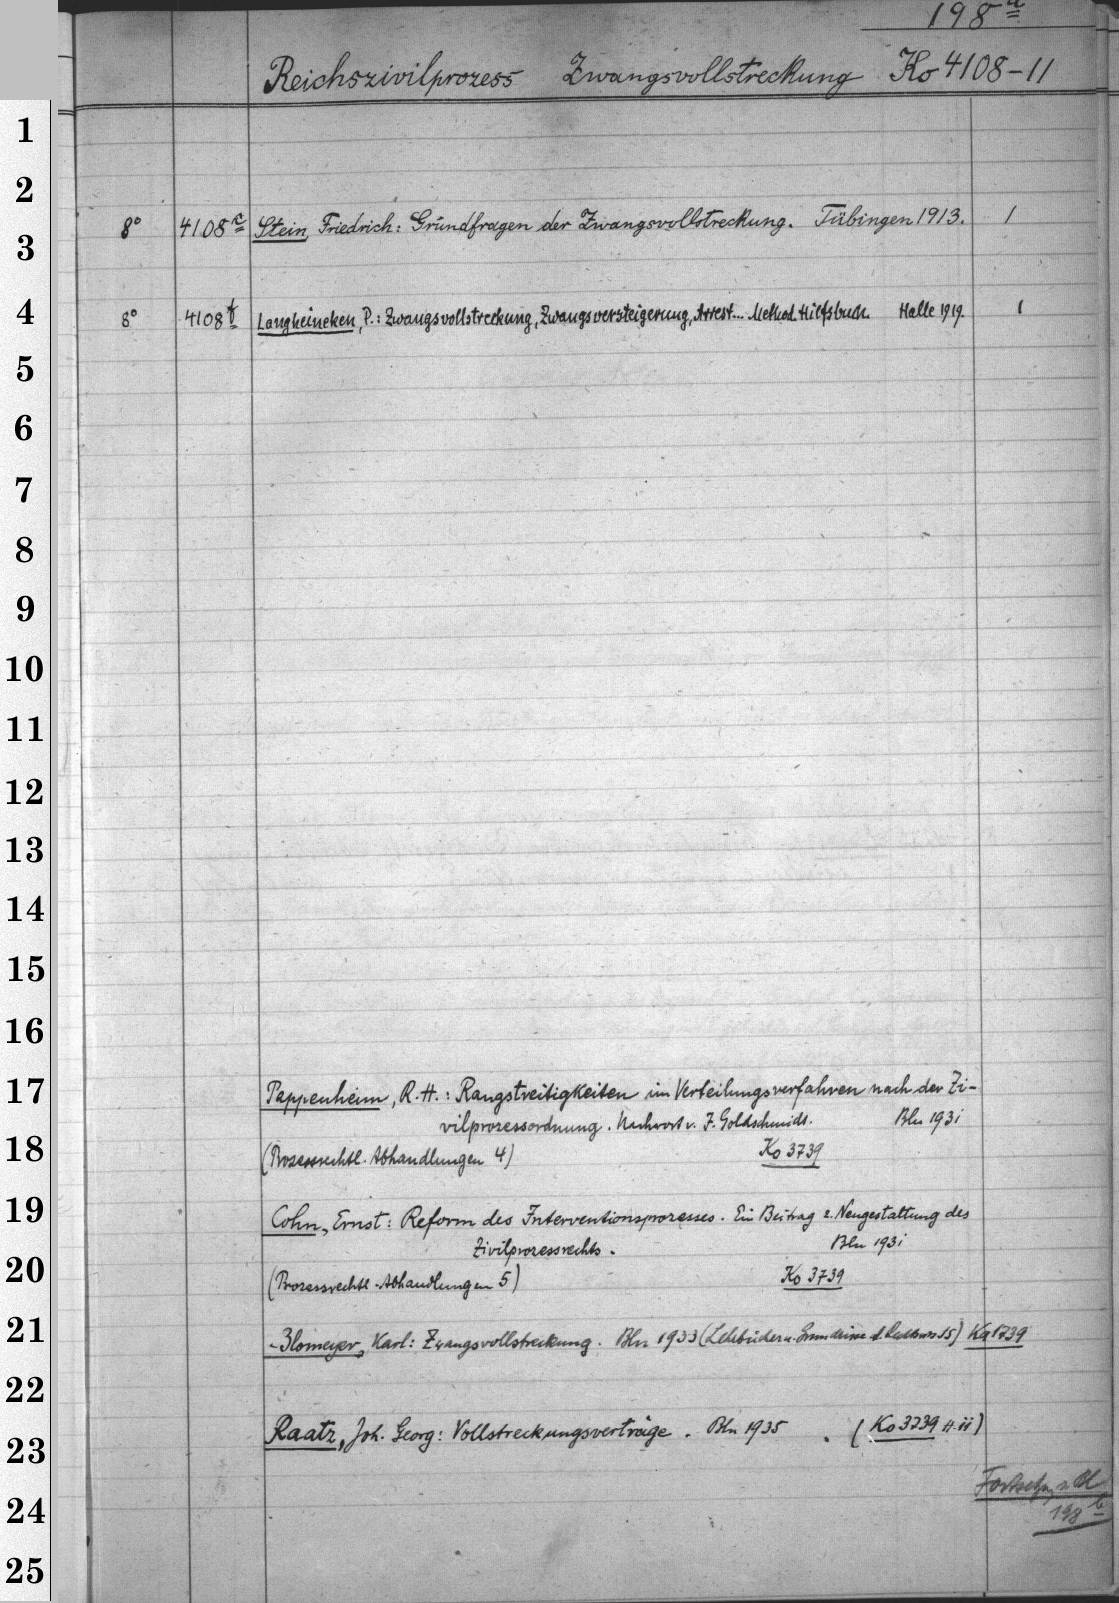 198a
Reichszivilprozess Zwangsvollstreckung Ko 4108-11
1
2
8° 4108c Stein, Friedrich: Grundfragen der Zwangsvollstreckung. Tübingen 1913. 1
3
4
8° 4108f Langheineken, P.: Zwangsvollstreckung, Zwangsversteigerung, Arrest... Method. Hilfsbuch. Halle 1919. 1
5
6
7
8
9
10
11
12
13
14
15
16
17
Pappenheim, R. H.: Rangstreitigkeiten im Verteilungsverfahren nach der Zi-
vilprozessordnung. Nachwort v. J. Goldschmidt. Bln 1931
18
(Prozessrechtl. Abhandlungen 4) Ko 3739
19
Cohn, Ernst: Reform des Interventionsprozesses. Ein Beitrag z. Neugestaltung des
Zivilprozessrechts. Bln 1931
20
(Prozessrechtl. Abhandlungen 5) Ko 3739
21
Blomeyer, Karl: Zwangsvollstreckung. Bln 1933 (Lehrbücher u. Grundrisse d. 15) Kq 1739
22
Raatz, Joh. Georg: Vollstreckungsverträge. Bln 1935. (Ko 3739 H. 11)
23
Fortsetzg. s. Bl
24
198b
25